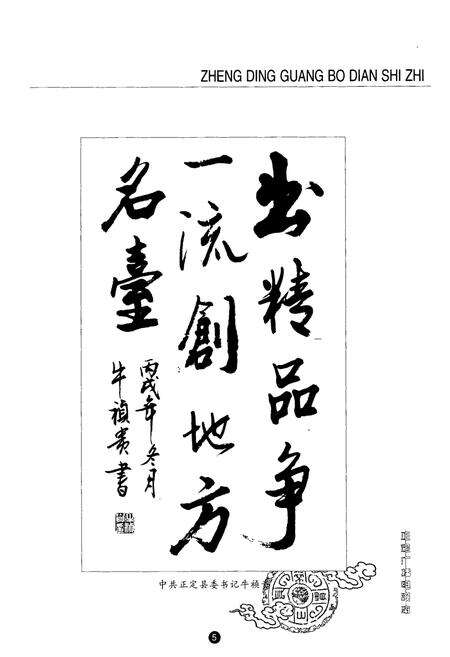 ZHENG DING GUANG BO DIAN SHI ZHI
出精品争
一流創地方
名臺
丙戌年冬月
牛禎贵書
中共正定县委书记牛祯
正定广播电视志
5